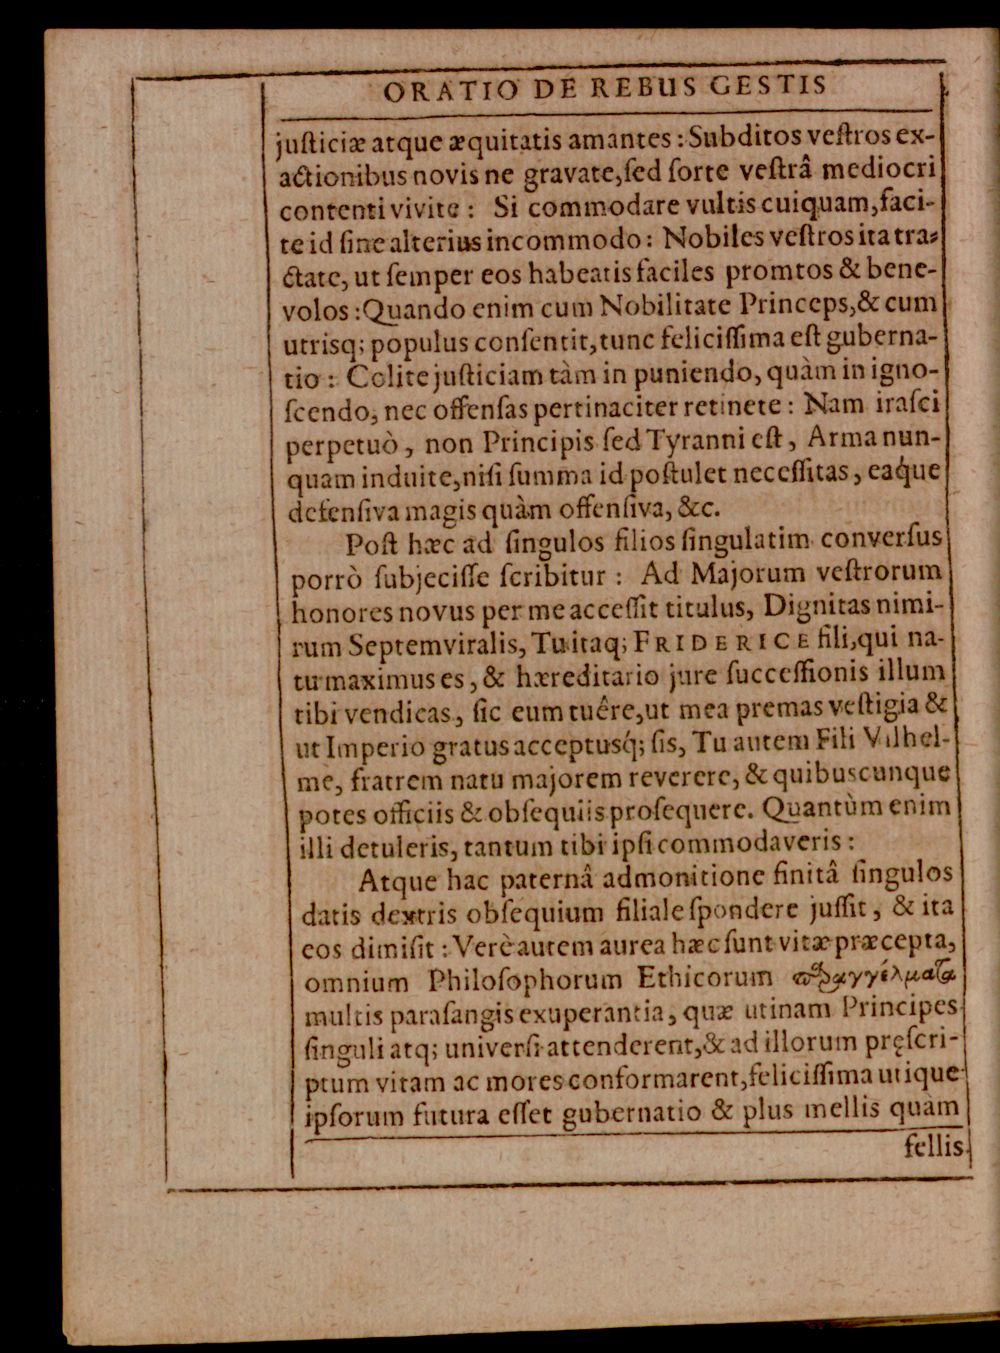 ORATIO DE REBUS GESTIS
juſticiæ atque æquitatis amantes : Subditos veſtros ex-
actionibus novis ne gravate, ſed ſorte veſtrâ mediocri
contenti vivite : Si commodare vultis cuiquam, faci-
te id ſine alterius incommodo : Nobiles veſtros ita tra-
ctate, ut ſemper eos habeatis faciles promtos & bene-
volos : Quando enim cum Nobilitate Princeps, & cum
utrisq; populus conſentit, tunc feliciſſima eſt guberna-
tio : Colite juſticiam tàm in puniendo, quàm in igno-
ſcendo, nec offenſas pertinaciter retinete : Nam iraſci
perpetuò, non Principis ſed Tyranni eſt, Arma nun-
quam induite, niſi ſumma id poſtulet neceſſitas, eaq́ue
defenſiva magis quàm offenſiva, &c.
Poſt hæc ad ſingulos filios ſingulatim converſus
porrò ſubjeciſſe ſcribitur : Ad Majorum veſtrorum
honores novus per me acceſſit titulus, Dignitas nimi-
rum Septemviralis, Tu itaq; FRIDERICE fili, qui na-
tu maximus es, & hæreditario jure ſucceſſionis illum
tibi vendicas, ſic eum tuêre, ut mea premas veſtigia &
ut Imperio gratus acceptusq́; ſis, Tu autem Fili Vilhel-
me, fratrem natu majorem reverere, & quibuscunque
potes officiis & obſequiis proſequere. Quantùm enim
illi detuleris, tantum tibi ipſi commodaveris :
Atque hac paternâ admonitione finitâ ſingulos
datis dextris obſequium filiale ſpondere juſſit, & ita
eos dimiſit : Verè autem aurea hæc ſunt vitæ præcepta,
omnium Philoſophorum Ethicorum παραγγέλματα
multis paraſangis exuperantia, quæ utinam Principes
ſinguli atq; univerſi attenderent, & ad illorum pręſcri-
ptum vitam ac mores conformarent, feliciſſima utique
ipſorum futura eſſet gubernatio & plus mellis quàm
fellis